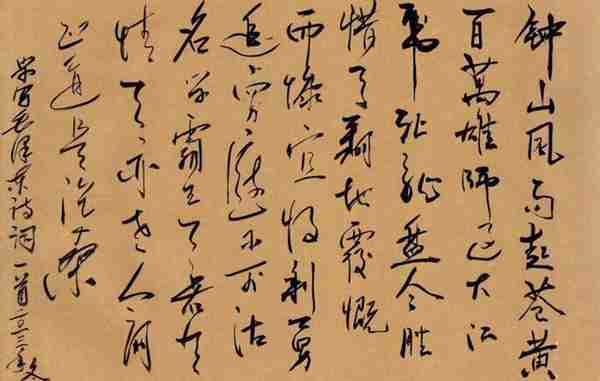 钟山风雨起苍黄
百萬雄师过大江
虎踞龙盘今胜
惜天翻地覆慨
而慷宜将剩勇
追穷寇不可沽
名学霸王天若有
情天亦老人间
正道是沧桑
写毛泽东诗词一首